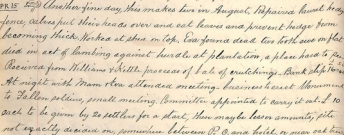 Fr 15 Another fine day, this makes two in August. Repaired barrel hedge
fence, calves put their heads over and eat leaves and prevent hedge from
becoming thick. Worked at shed on top. Ewe found dead two tooth ewe on flat
died in act of lambing against hurdle at plantation, a place hard to
Received from William & Kettle proceeds of bale of crutchings. Bank slip
At night with Mam & Rex attended meeting. business was Monument
to Fallen soldiers, small meeting. Committee appointed to carry it out. £10
each to be given by 20 settlers for a start, there may be less in amounts, site
not exactly decided on, somewhere between P.O. and hotel, or may